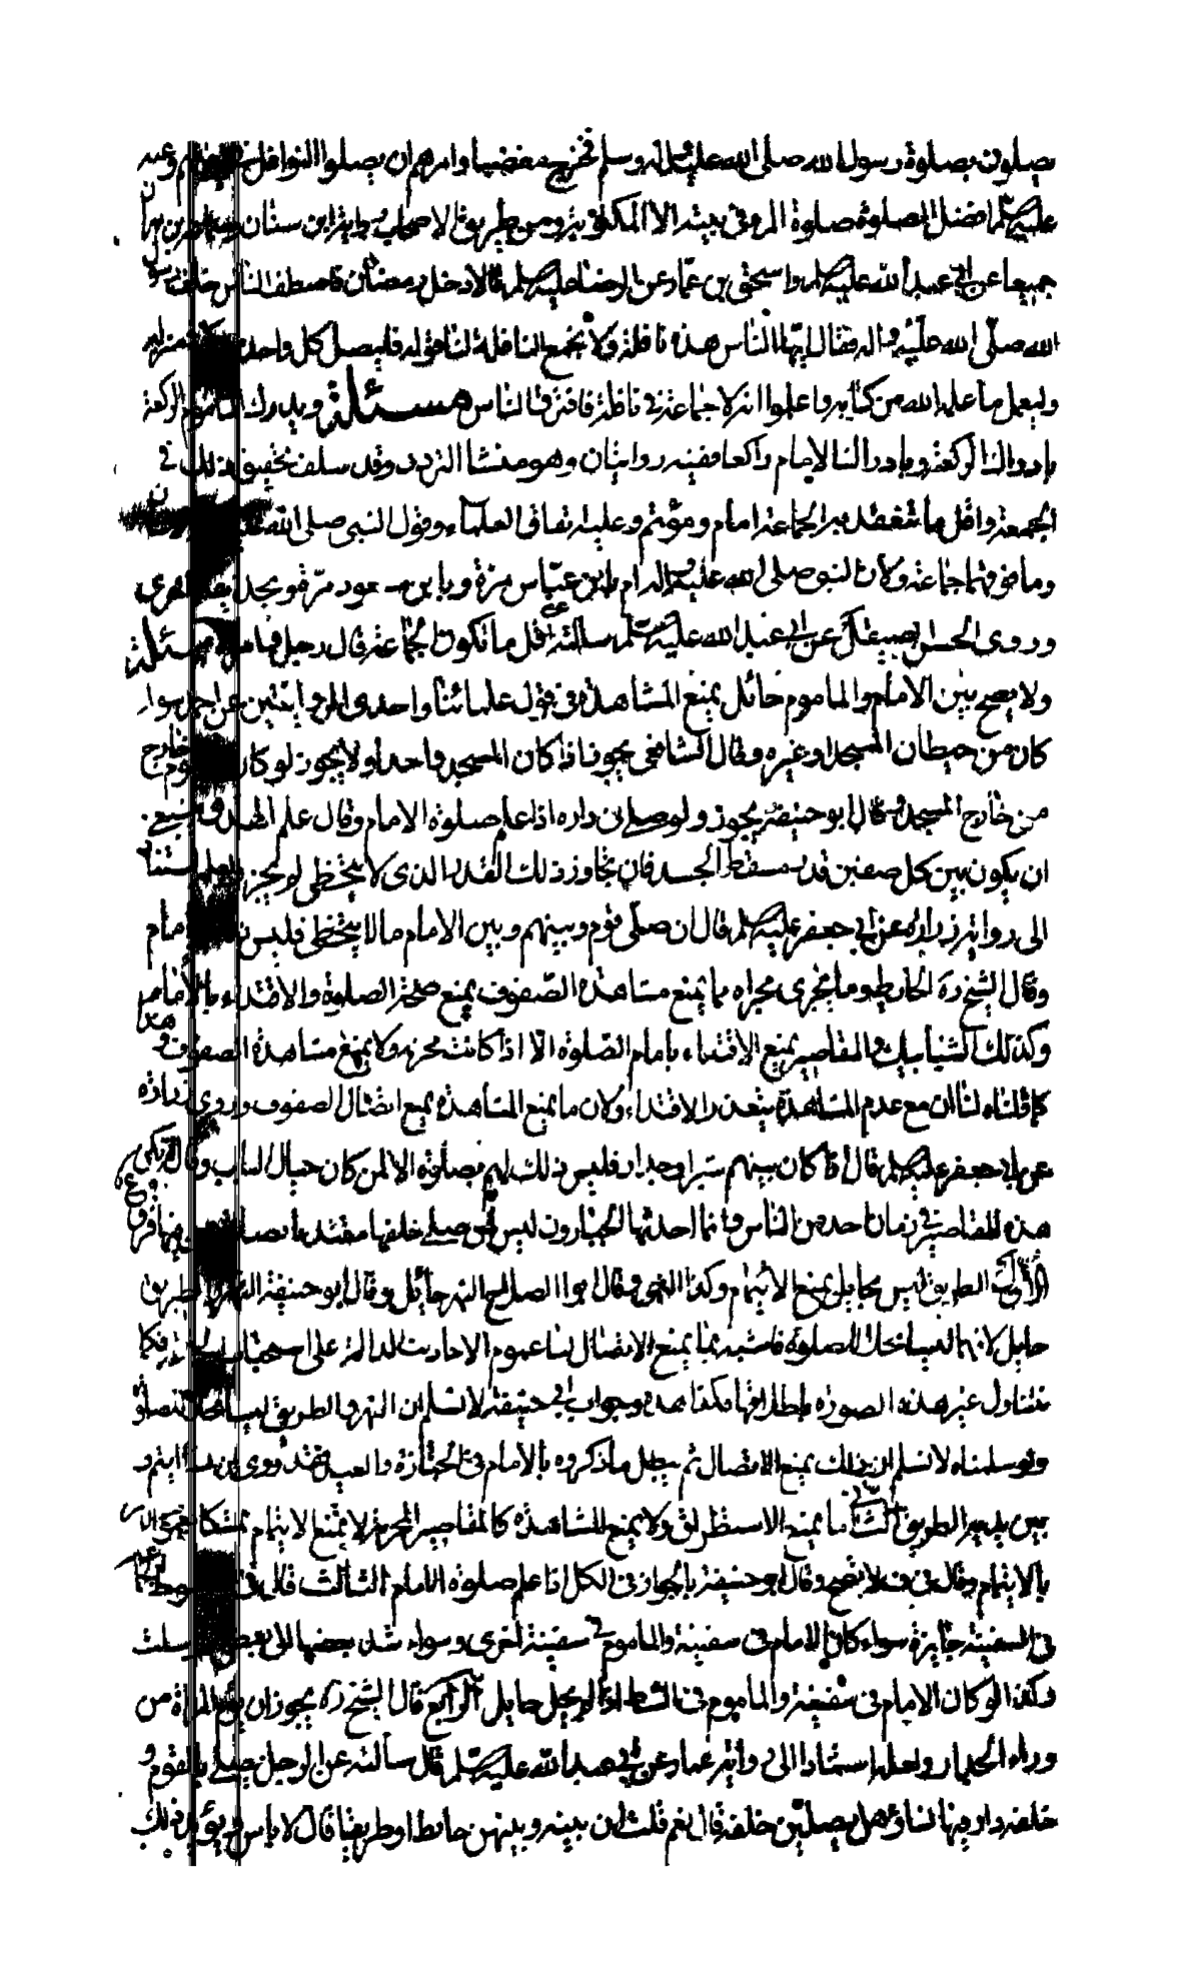 يصلون بصلوة رسول الله صلى الله عليه واله وسلم فخرج مغضبا وامرهم ان يصلوا النوافل وعنه
عليه السلم افضل الصلوة صلوة المرء في بيته الا المكتوبة ومن طريق الاصحاب رواية ابن سنان
جميعا عن ابي عبد الله عليه السلم واسحق بن عمار عن الرضا عليه السلم قالا دخل رمضان فاصطف الناس خلف رسول
الله صلى الله عليه واله فقال ايها الناس هذه نافلة ولا تجمع النافلة لنا قوله فليصل كل واحد منزله
وليعمل ما علمه الله من كتابه واعلموا انه لا جماعة في نافلة فافترق الناس مسئلة ويدرك الماموم الركعة
بادراك الركعة وبادراك الامام راكعا ففيه روايتان وهو منشا التردد وقد سلف تحقيق ذلك في
الجمعة واقل ما تنعقد به الجماعة امام ومؤتم وعليه اتفاق العلماء وقول النبي صلى الله
وما فوقهما جماعة وكان النبي صلى الله عليه واله ام بابن عباس مرة وبابن مسعود مرة وبحذيفة اخرى
وروى الحسن الصيقل عن ابي عبد الله عليه السلم سالته عن اقل ما تكون الجماعة قال رجل وامراة مسئلة
ولا يصح بين الامام والماموم حائل يمنع المشاهدة وفي قول علمائنا واحدى الروايتين عن احمد سواء
كان من حيطان المسجد او غيره وقال الشافعي يجوز اذا كان المسجد واحدا ولا يجوز لو كان الماموم خارج
من خارج المسجد وقال ابو حنيفة يجوز ولو صلى في داره اذا علم صلوة الامام وقال علم الهدى ينبغي
ان يكون بين كل صفين قدر مسقط الجسد فان تجاوز ذلك القدر الذي لا يتخطى لم يجز استنادا
الى رواية زرارة عن ابي جعفر عليه السلم قال ان صلى قوم وبينهم وبين الامام ما لا يتخطى فليس بامام
وقال الشيخ ره الحائط وما يجري مجراه مما يمنع مشاهدة الصفوف يمنع صحة الصلوة والاقتداء بالامام
وكذلك الشبابيك والمقاصير يمنع الاقتداء بامام الصلوة الا اذا كانت مخرمة ولا يمنع مشاهدة الصفوف وهذا
كما قلناه لنا ان مع عدم المشاهدة يتعذر الاقتداء ولان ما يمنع المشاهدة يمنع اتصال الصفوف وروى زرارة
عن ابي جعفر عليه السلم قال اذا كان بينهم ستر او جدار فليس ذلك لهم بصلوة الا لمن كان حيال الباب وقال لم يكن
هذه المقاصير في زمان احد من الناس وانما احدثها الجبارون ليس لمن صلى خلفها مقتديا بصلاة من فيها فروع
الاول الطريق ليس بحايل يمنع الايتمام وكذا النهر وقال ابو الصلاح النهر حائل وقال ابو حنيفة النهر والطريق
حايل لانهما ليسا محلا للصلوة فاشبه بما يمنع الاتصال لنا عموم الاحاديث الدالة على استحباب الجماعة فكما
تتناول غير هذه الصورة باطلاقها فكذا هذه وجواب ابي حنيفة لا نسلم ان النهر والطريق ليسا محلا للصلوة
ولو سلمناه لا نسلم ان ذلك يمنع الاتصال ثم يبطل ما ذكروه بالامام في الجنازة والعيد فقد روى ايتم و
بين يديه الطريق الثاني ما يمنع الاستطراق ولا يمنع المشاهدة كالمقاصير المخرمة لا يمنع الايتمام
بالايتمام وقال في ف لا يصح وقال ابو حنيفة بالجواز في الكل اذا علم صلوة الامام الثالث قال في المبسوط
في السفينة جايزة سواء كان الامام في سفينة والماموم في سفينة اخرى وسواء شد بعضها الى بعض او ارسلت
وكذا لو كان الامام في سفينة والماموم في الشط اذا لم يحل حايل الرابع قال الشيخ ره يجوز ان يؤم المراة من
وراء الجدار ولعله استنادا الى رواية عمار عن ابي عبد الله عليه السلم قال سالته عن الرجل يصلي بالقوم و
خلفه دار فيها نساؤ هل يصلين خلفه قال نعم قلت ان بينه وبينهن حائطا وطريقا قال لا باس ويؤيد ذلك